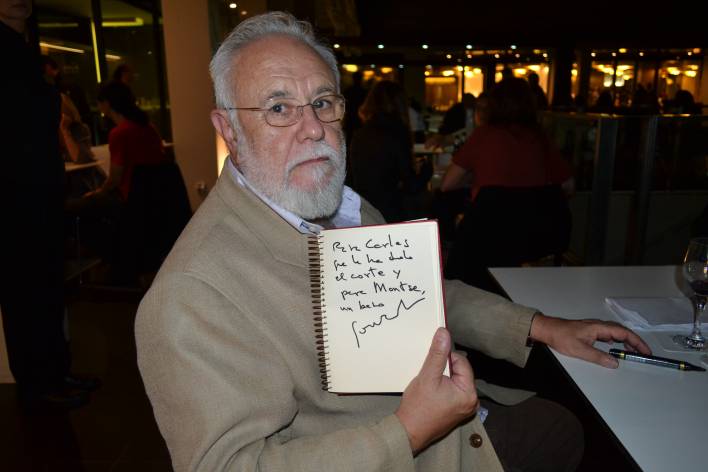 Para Carles
que le ha dado
el corte y
para Montse,
un beso